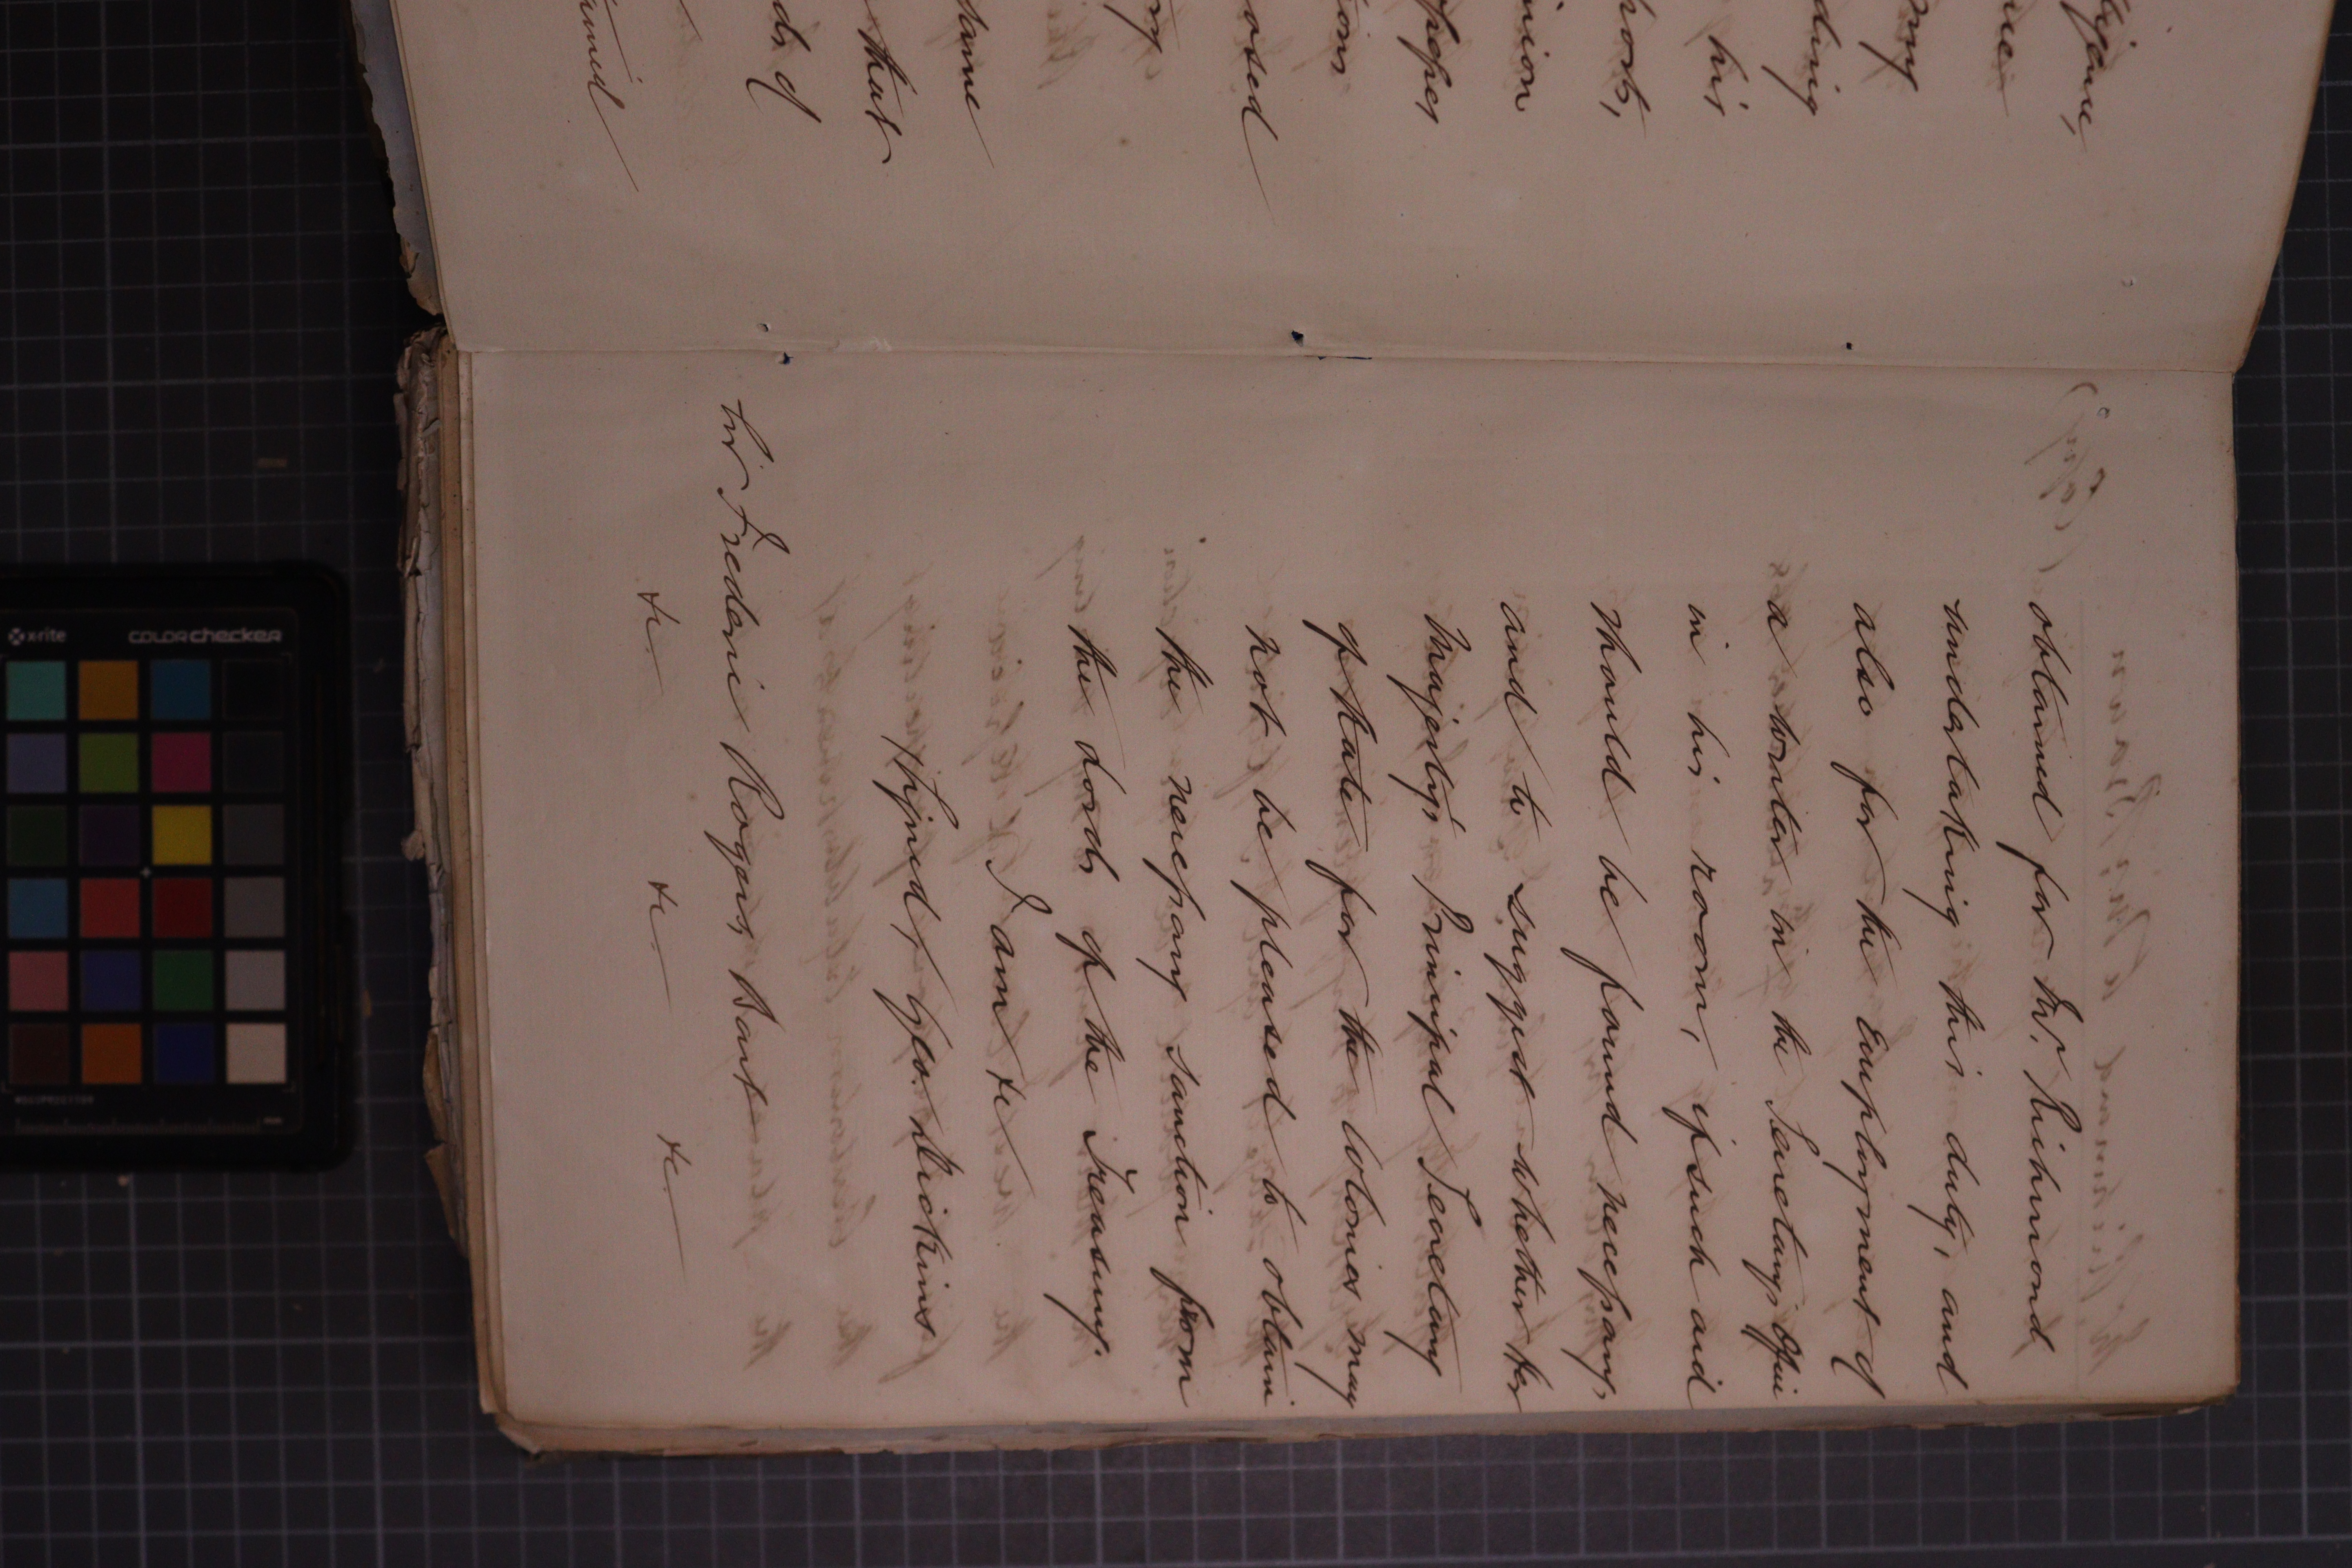 obtained for Mr. Richmond
undertaking this duty, and
also for the employment of
a writer in the Secretary's Office
in his room, if such aid
should be found necessary,
and to suggest whether Her
Majesty's Principal Secretary
of State for the Colonies may
not be pleased to obtain
the necessary sanction from
the Lords of the Treasury.
I am &c
(Signed) Geo. Nicholls
Sir Frederic Rogers, Bart
&c. &c. &c.
that
same
his
x-rite
colorchecker